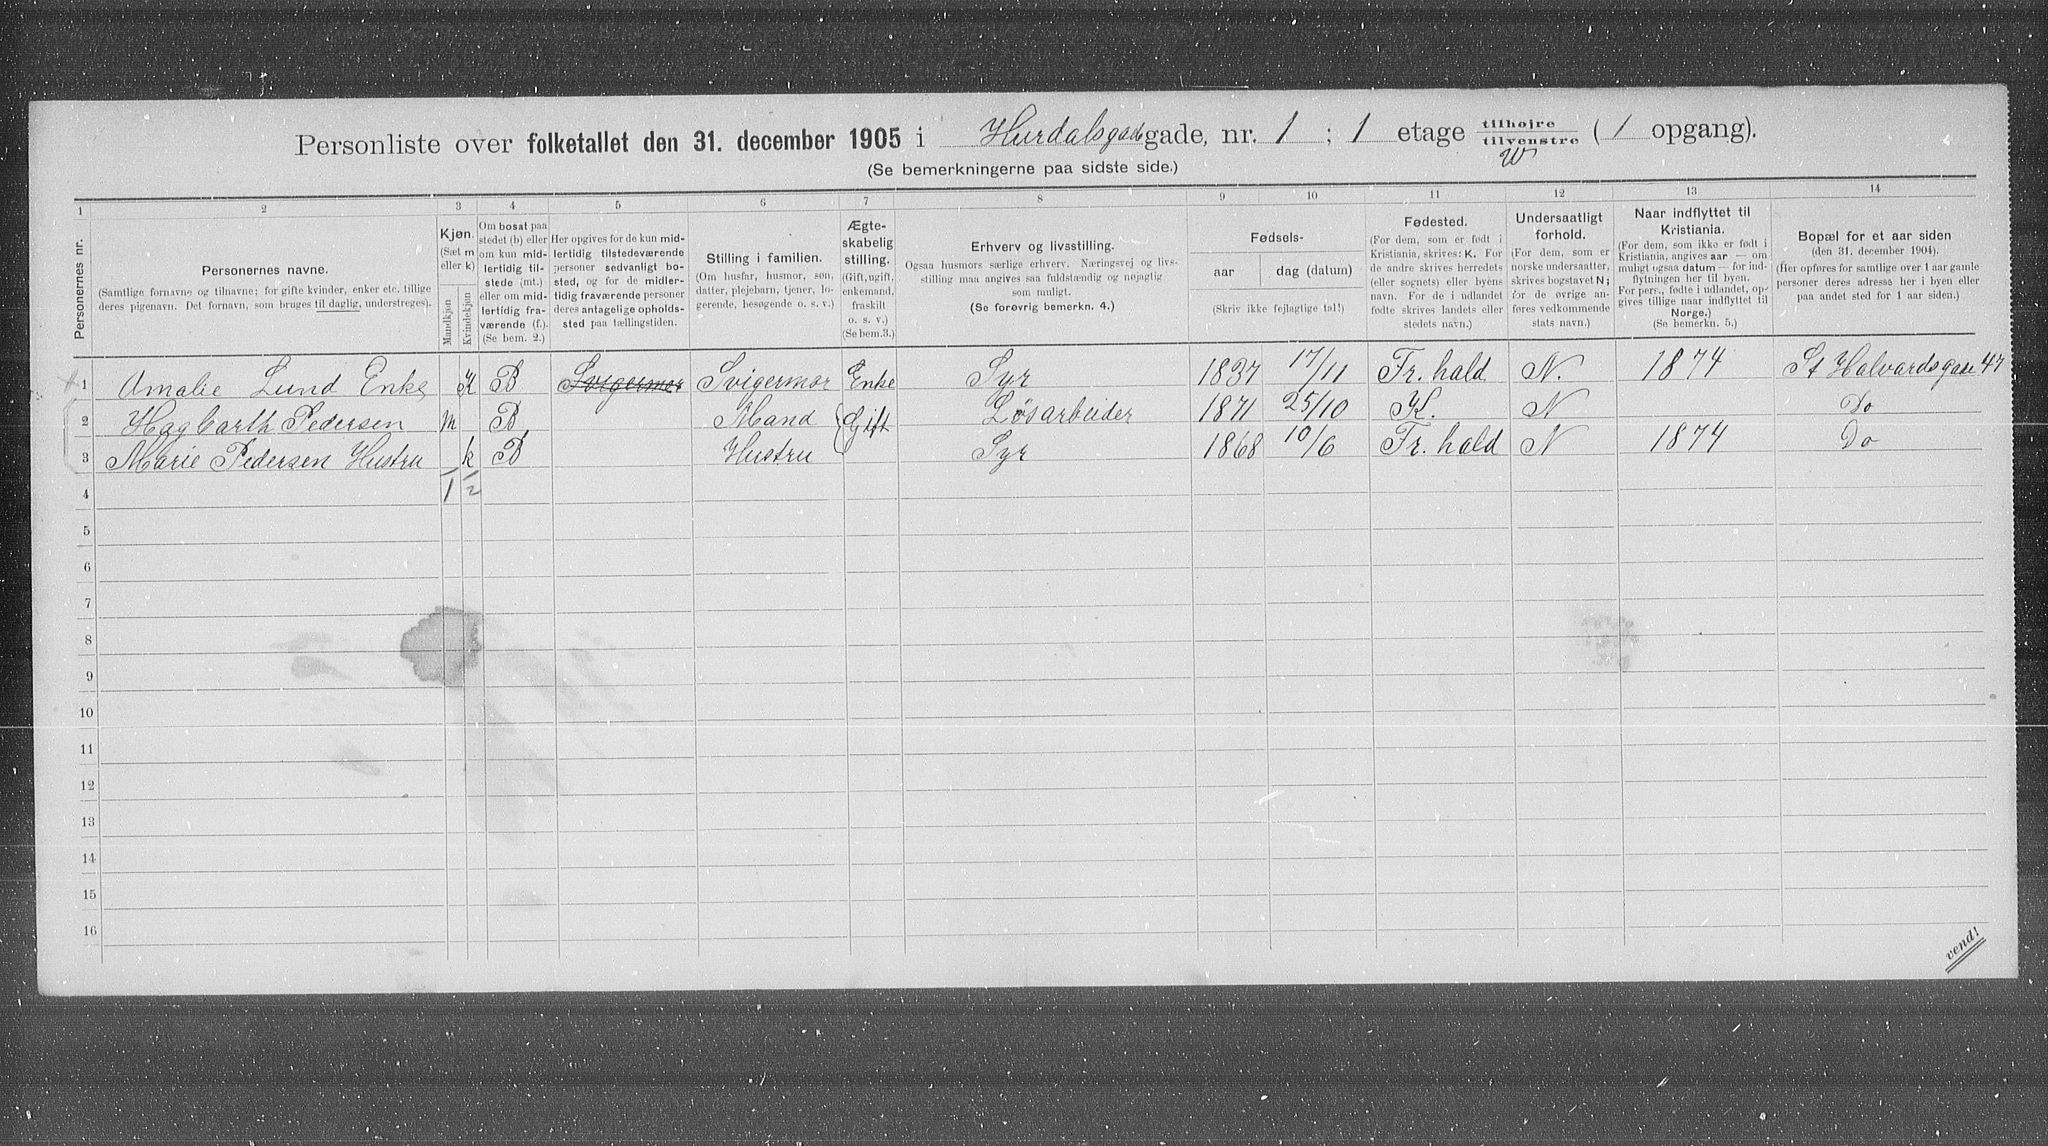 Personliste over folketallet den 31. december 1905 i Hurdalsgade gade, nr. 1 ; 1 etage tilhøjre tilvenstre ( 1 opgang).
(Se bemerkningerne paa sidste side.)
1 2 3 4 5 6 7 8 9 10 11 12 13 14
Personernes nr.
Personernes navne.
(Samtlige fornavne og tilnavne; for gifte kvinder, enker etc. tillige
deres pigenavn. Det fornavn, som bruges til daglig, understreges).
Kjøn.
(Sæt m
eller k)
Mandkjøn
Kvindekjøn
Om bosat paa
stedet (b) eller
om kun mid-
lertidig til-
stede (mt.)
eller om mid-
lertidig fra-
værende (f.).
(Se bem. 2.)
Her opgives for de kun mid-
lertidig tilstedeværende
personer sedvanligt bo-
sted, og for de midler-
tidig fraværende personer
deres antagelige opholds-
sted paa tællingstiden.
Stilling i familien.
(Om husfar, husmor, søn,
datter, plejebarn, tjener, lo-
gerende, besøgende o. s. v.)
Ægte-
skabelig
stilling.
(Gift, ugift,
enkemand,
fraskilt
o. s. v.)
(Se bem.3.)
Erhverv og livsstilling.
Ogsaa husmors særlige erhverv. Næringsvej og livs-
stilling maa angives saa fuldstændig og nøjagtig
som muligt.
(Se forøvrig bemerkn. 4.)
Fødsels-
aar dag (datum)
(Skriv ikke fejlagtige tal!)
Fødested.
(For dem, som er født i
Kristiania, skrives: K. For
de andre skrives herredets
(eller sognets) eller byens
navn. For de i udlandet
fødte skrives landets eller
stedets navn.)
Undersaatligt
forhold.
(For dem, som er
norske undersaatter,
skrives bogstavet N;
for de øvrige an-
føres vedkommende
stats navn.)
Naar indflyttet til
Kristiania.
(For dem, som ikke er født i
Kristiania, angives aar — om
muligt ogsaa datum — for ind-
flytningen her til byen.
For pers., fødte i udlandet, op-
gives tillige naar indflyttet til
Norge.)
(Se bemerkn. 5.)
Bopæl for et aar siden
(den 31. december 1904).
(Her opføres for samtlige over 1 aar gamle
personer deres adresse her i byen eller
paa andet sted for 1 aar siden.)
1 Amalie Lund Enke K B Svigermor Svigermor Enke Syr 1837 17/11 Fr. hald N. 1874 St Halvardsgade 47
2 Hagbarth Pedersen m B Mand Gift Løsarbeider 1871 25/10 K. N Do
3 Marie Pedersen Hustru k B Hustru Syr 1868 10/6 Fr. hald N 1874 Do
4 1 2
5
6
7
8
9
10
11
12
13
14
15
16
vend!